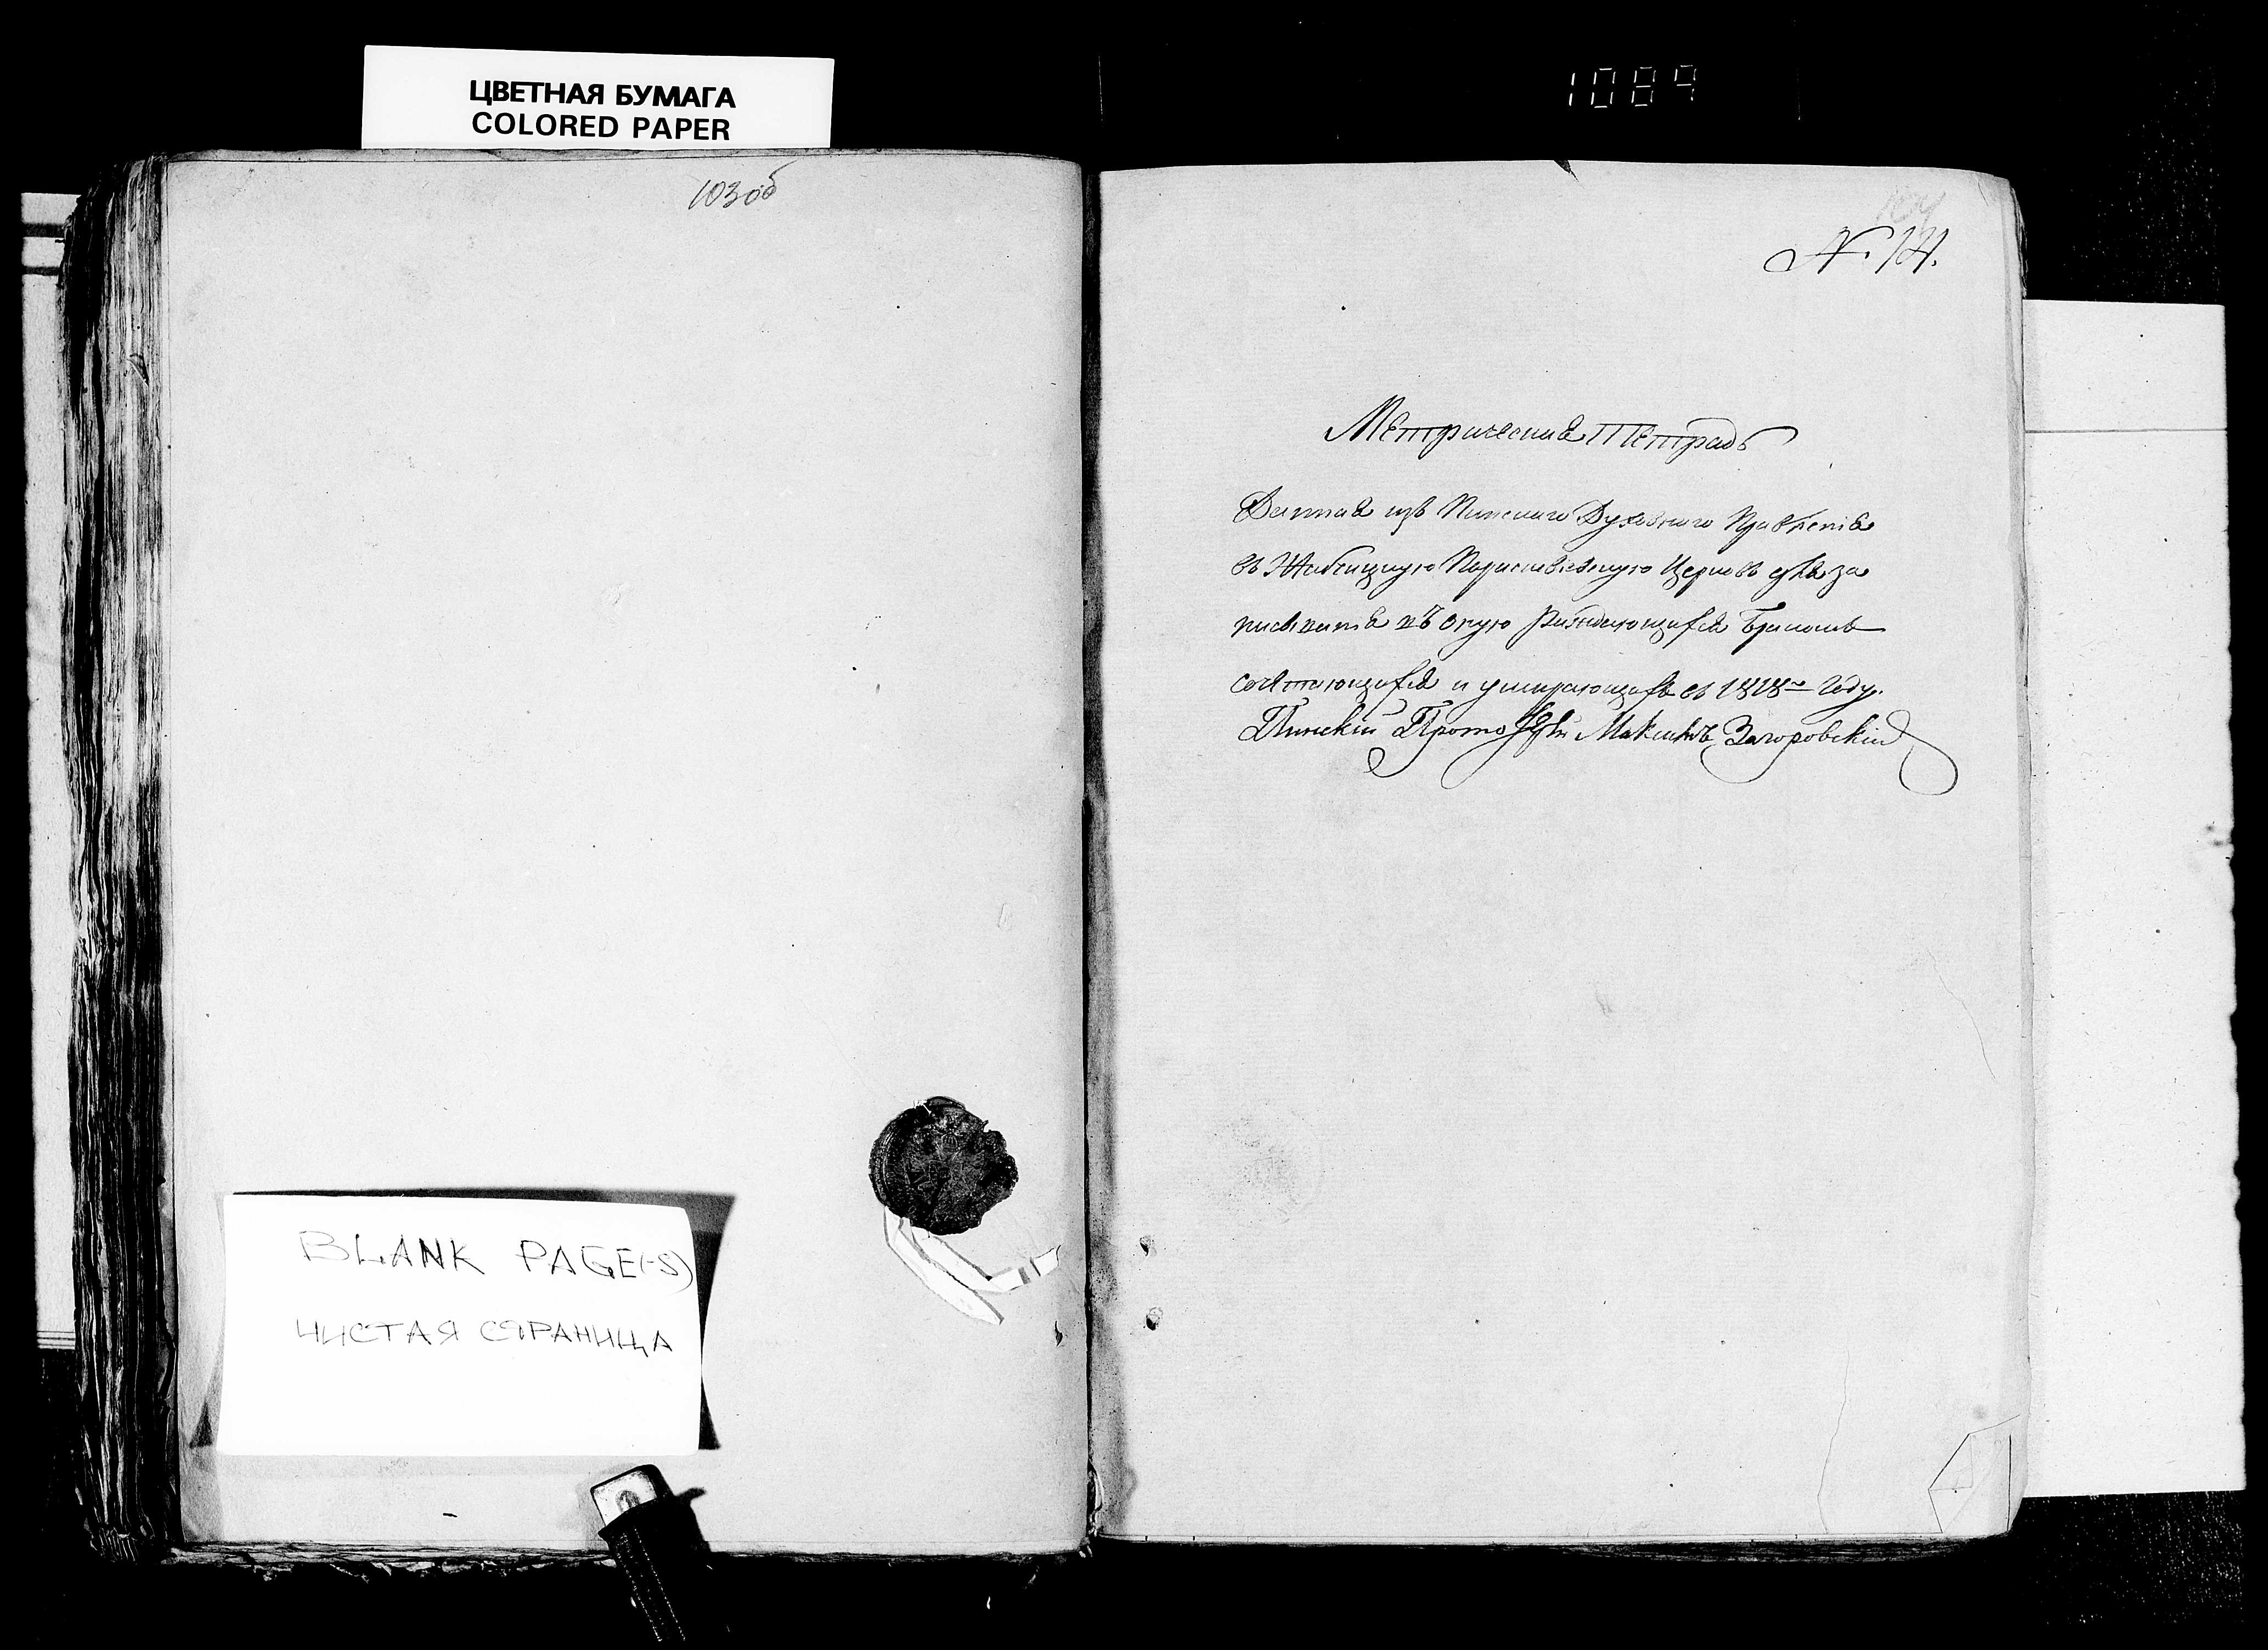 ЦВЕТНАЯ БУМАГА
COLORED PAPER
1089
103об
104
№ 14.
Метрическая Тетрадь
Данная изъ Пинскаго Духовнаго Правления
въ Церковь для за
писыванія въ оную Раждающихся Бракомъ
сочетающихся и умирающихъ въ 1818 году.
Пинскій Протоіерей Максимъ Загоровскій
BLANK PAGE(-S)
ЧИСТАЯ СТРАНИЦА